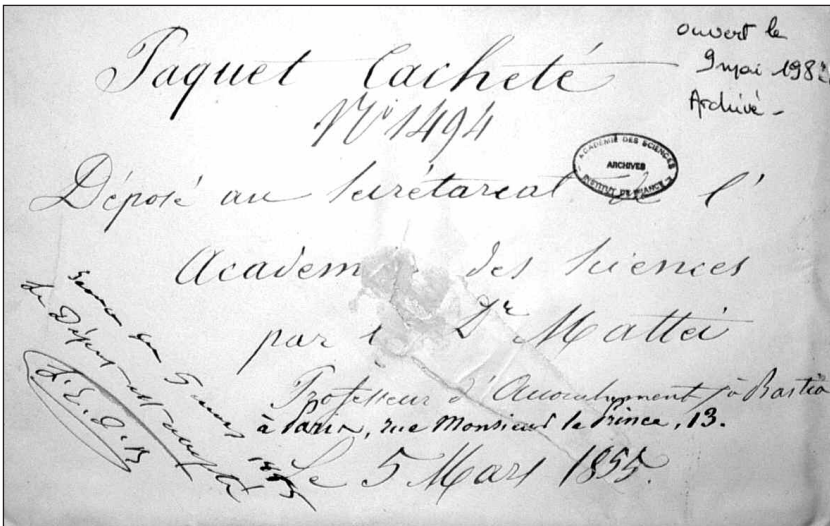 Paquet Cacheté
N° 1494
ouvert le
9 mai 198
Archivé -
ACADÉMIE DES SCIENCES
ARCHIVES
INSTITUT DE FRANCE
Déposé au Secrétariat de l'
Académie des Sciences
par le Dr Mattei
Professeur d'Accouchement à Bastia
à Paris, rue Monsieur le Prince, 13.
Le 5 Mars 1855.
Séance du 5 mars 1855
le Dépôt est accepté